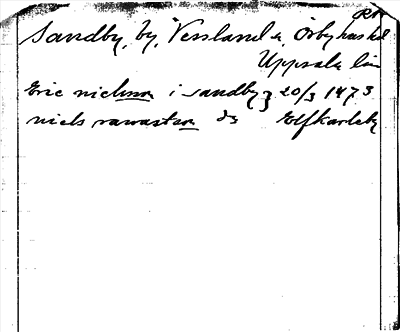 Sandby, by, Vessland s, Örbyhus hd
Uppsala län
Eric nielsson i sandby } 20/3 1473
niels ravvastson ds Elfkarleby